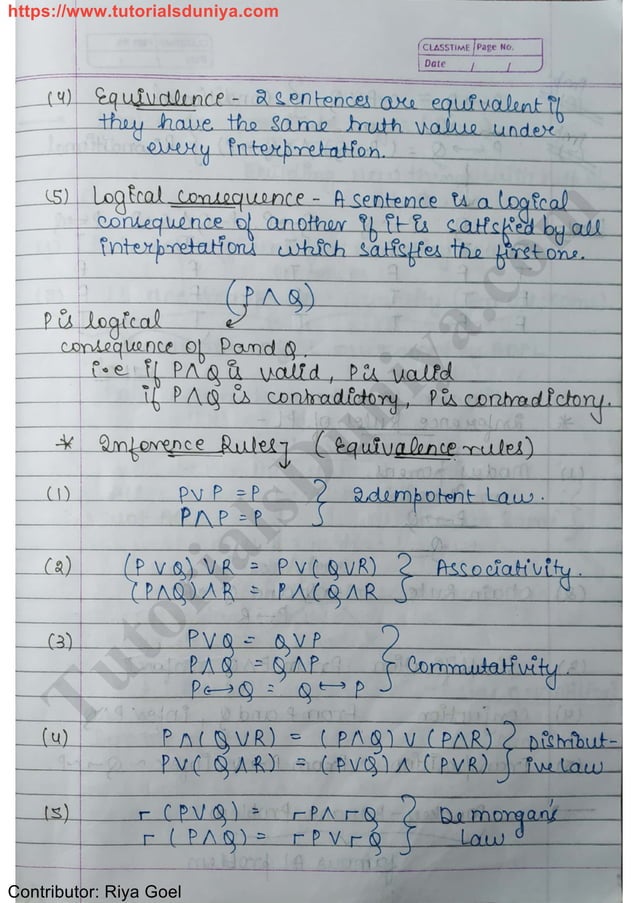 https://www.tutorialsduniya.com
CLASSTIME Page No.
Date / /
(4) Equivalence - 2 sentences are equivalent if
they have the same truth value under
every interpretation.
(5) Logical consequence - A sentence is a logical
consequence of another if it is satisfied by all
interpretations which satisfies the first one.
(P ∧ Q)
P is logical
consequence of P and Q.
i.e if P∧Q is valid, P is valid
if P∧Q is contradictory, P is contradictory.
* Inference Rules (Equivalence rules)
(1) P∨P = P
P∧P = P } Idempotent Law.
(2) (P∨Q)∨R = P∨(Q∨R)
(P∧Q)∧R = P∧(Q∧R } Associativity.
(3) P∨Q = Q∨P
P∧Q = Q∧P } Commutativity.
P↔Q = Q↔P
(4) P∧(Q∨R) = (P∧Q)∨(P∧R) } Distribut-
P∨(Q∧R) = (P∨Q)∧(P∨R) ive law
(5) ¬(P∨Q) = ¬P∧¬Q } De morgan's
¬(P∧Q) = ¬P∨¬Q Law
TutorialsDuniya.com
Contributor: Riya Goel